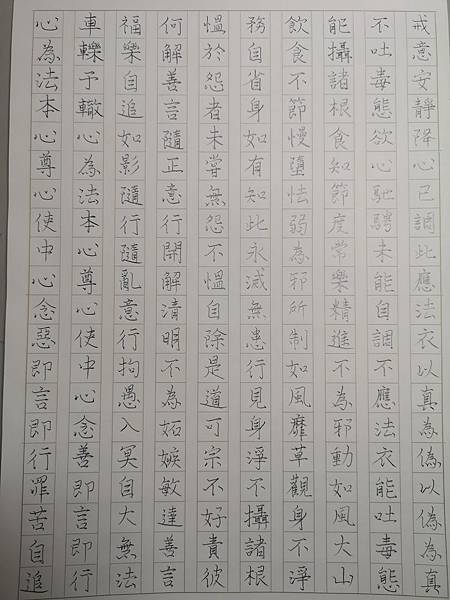 心為法本心尊心使中心念惡即言即行罪苦自追
車轢予轍心為法本心尊心使中心念善即言即行
福樂自追如影隨行隨亂意行拘愚入冥自大無法
何解善言隨正意行開解清明不為妬嫉敏達善言
慍於怨者未嘗無怨不慍自除是道可宗不好責彼
務自省身如有知此永滅無患行見身淨不攝諸根
飲食不節慢墮怯弱為邪所制如風靡草觀身不淨
能攝諸根食知節度常樂精進不為邪動如風大山
不吐毒態欲心馳騁未能自調不應法衣能吐毒態
戒意安靜降心已調此應法衣以真為偽以偽為真